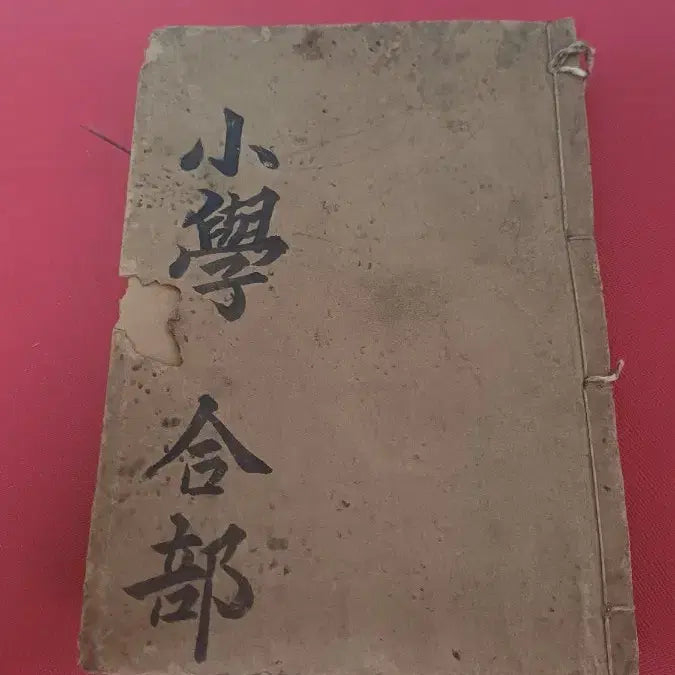 小學 合部